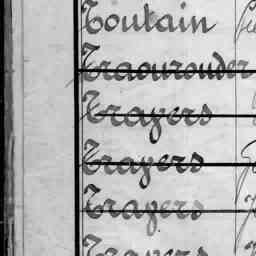 Toulain
Traourouder
Trayers
Trayers
Trayers
Trayers